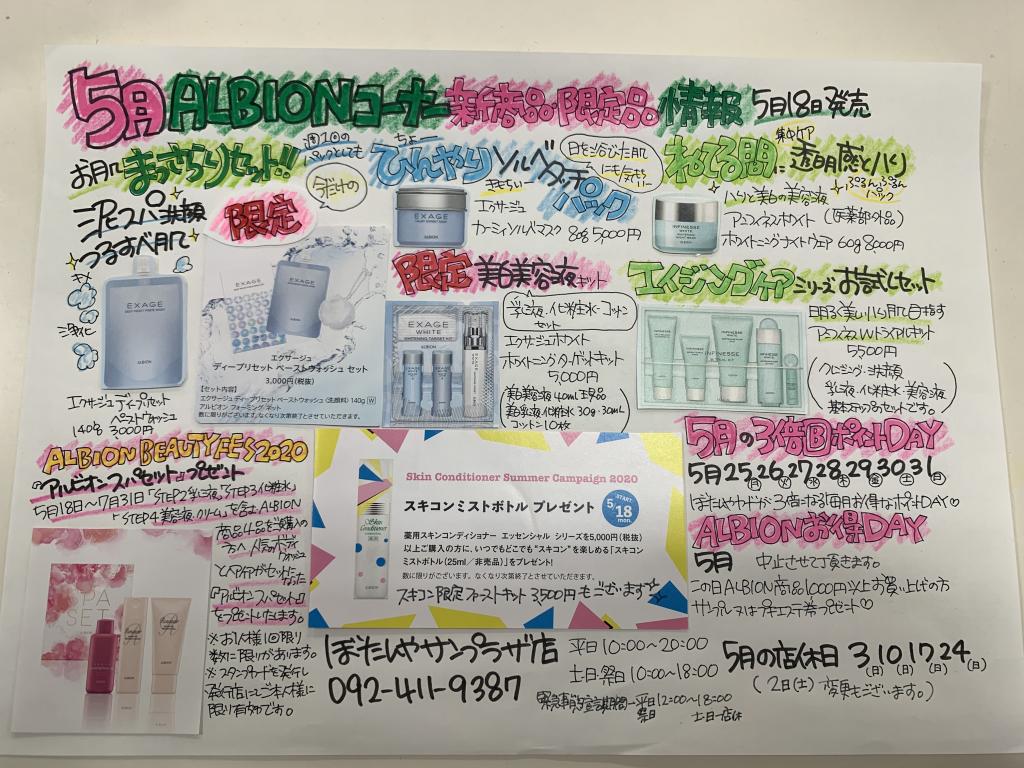 5月 ALBIONコーナー 新商品・限定品 情報 5月18日発売
お肌て まっさらりセット!!
泥スパ洗顔
つるすべ肌て
限定
今だけの
EXAGE
ALBION
エクサージュ
ディープリセット ペーストウォッシュ セット
3,000円(税抜)
【セット内容】
エクサージュ ディープリセット ペーストウォッシュ〈洗顔料〉140g W
アルビオン フォーミング ネット
数に限りがございます。なくなり次第終了とさせていただきます。
エクサージュ ディープリセット
ペーストウォッシュ
140g 3,000円
週1回の
パックとしても
ひんやり ソルベタッチ
パック
日を浴びた肌
にも気持ち
EXAGE
ALBION
エクサージュ
カーミィソルベマスク 80g 5,000円
集中ケア
ねてる間に透明感とハリ
ぷるんぷるん
パック
ハリと美白の美容液
アンフィネスホワイト (医薬部外品)
ホワイトニングナイトウェア 60g 8,000円
INFINESSE
WHITE
限定 美白美容液キット
EXAGE
WHITE
WHITENING TARGET KIT
ALBION
乳液・化粧水・コットン
セット
エクサージュホワイト
ホワイトニングターゲットキット
5,000円
美白美容液 40ml 現品
美白乳液・化粧水 30g・30mL
コットン 10枚
エイジングケアシリーズお試しセット
INFINESSE
明るく美しいハリ肌て目指す
アンフィネスWトライアルキット
5500円
クレンジング・洗顔
乳液・化粧水・美容液
基本セットです。
ALBION BEAUTY FES 2020
「アルビオンスパセット」プレゼント
5月18日~7月31日「STEP2乳液」「STEP3化粧水」
「STEP4美容液・クリーム」を含むALBION
商品4品をご購入の
方へ人気のボディ
ウォッシュ
がセットになった
「アルビオンスパセット」
をプレゼントいたします。
※お1人様1回限り
数に限りがあります。
※スタンプカードを発行し
発行店にご本人様に
限り有効です。
SPA
SET
ALBION
Skin Conditioner Summer Campaign 2020
スキコンミストボトル プレゼント
START
5/18 mon.
Skin
Conditioner
薬用スキンコンディショナー エッセンシャル シリーズを5,000円(税抜)
以上ご購入の方に、いつでもどこでも“スキコン”を楽しめる「スキコン
ミストボトル(25ml/非売品)」をプレゼント!
数に限りがございます。なくなり次第終了とさせていただきます。
スキコン限定ファーストキット 3,500円もございます☆
5月の3倍BポイントDAY
5月25,26,27,28,29,30,31
(月)(火)(水)(木)(金)(土)(日)
ぼたんやカードが3倍になる毎月お得なポイントDAY♡
ALBIONお得DAY
5月 中止させて頂きます。
この日ALBION商品6,000円以上お買い上げの方
サンプル又はプチエステ券プレゼント♡
ぼたんやサンプラザ店
092-411-9387
平日10:00~20:00
土日・祭日10:00~18:00
緊急事態宣言期間→平日12:00~18:00
祭日
土日→店休
5月の店休日 3, 10, 17, 24
(日) (日) (日) (日)
(2日(土) 変更もございます。)